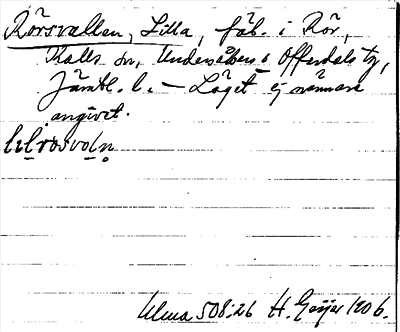 Rörsvallen, Lilla, fäb. i Rör,
Kalls sn, Undersåkers o Offerdals tg,
Jämtl. l. — Läget ej närmare
angivet.
Ulma 508:26 H. Geijer 1906.